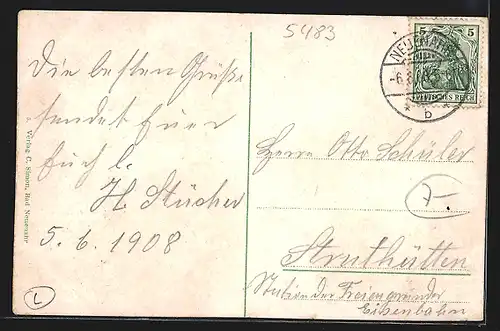 5483
Die besten Grüße
sendet Euer
Euch l.
H. Stücher
5. 6. 1908
Verlag C. Simon, Bad Neuenahr
5 5
DEUTSCHES REICH
b
Herrn Otto Schüler
7-
Struthütten
Station der Freiengrunder
Eisenbahn
L